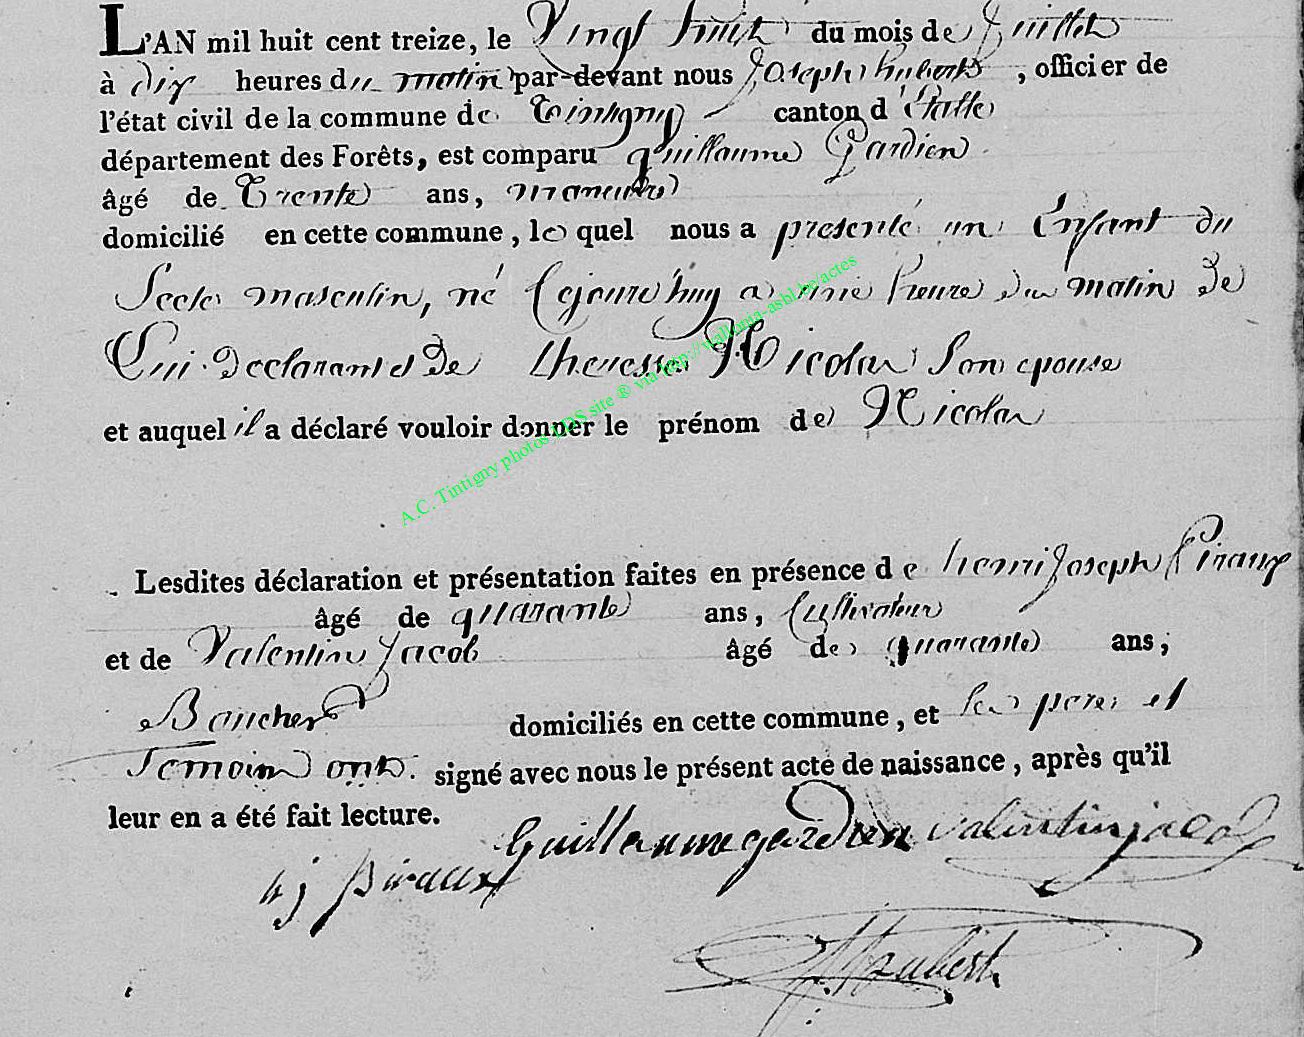 L'AN mil huit cent treize, le Vingt huit du mois de Juillet
à dix heures du matin par-devant nous Joseph hubert, officier de
l'état civil de la commune de tintigny canton d'Etalle
département des Forêts, est comparu guillaume Gardien
âgé de Trente ans, manœuvre
domicilié en cette commune, le quel nous a presenté un Enfant du
Sexte masculin, né Cejourd'huy a une heure du matin de
Lui Declarant et De theresse Nicolas Son epouse
et auquel il a déclaré vouloir donner le prénom de Nicolas
A.C. Tintigny photos LDS site ® via http://wallonia-asbl.be/actes
Lesdites déclaration et présentation faites en présence de henri Joseph Piraux
âgé de quarante ans, Cultivateur
et de Valentin Jacob âgé de quarante ans,
Boucher domiciliés en cette commune, et les pere et
Temoin ont signé avec nous le présent acte de naissance, après qu'il
leur en a été fait lecture.
Guillaume gardien valentin jacob
h j piraux
Haubert